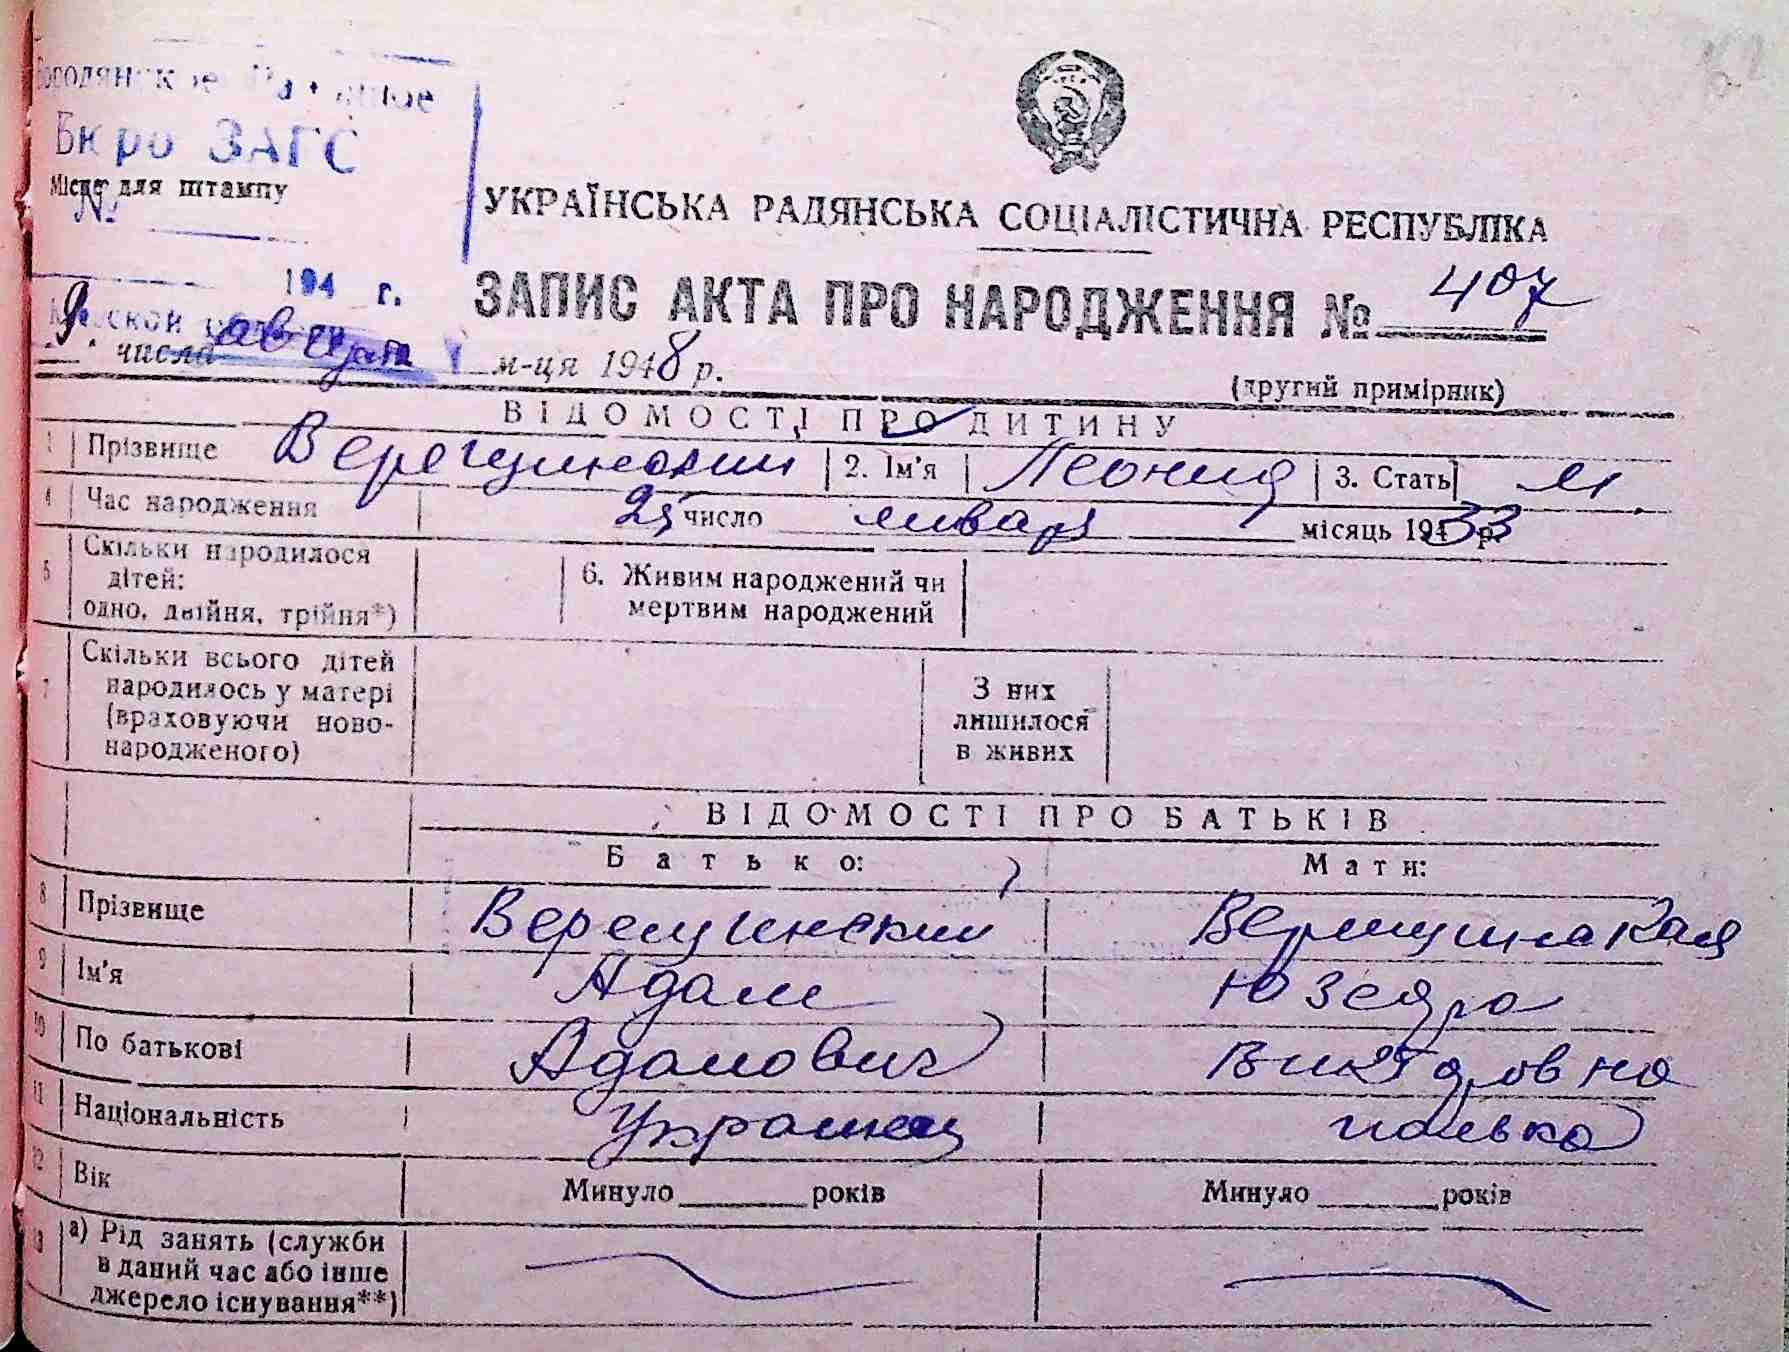 Бюро ЗАГС
Місце для штампу
№
УКРАЇНСЬКА РАДЯНСЬКА СОЦІАЛІСТИЧНА РЕСПУБЛІКА
194 г.
ЗАПИС АКТА ПРО НАРОДЖЕННЯ № 407
9 числа августа м-ця 1948 р.
(другий примірник)
ВІДОМОСТІ ПРО ДИТИНУ
1 Прізвище Верещинский 2. Ім'я Леонид 3. Стать м.
4 Час народження 25 число января місяць 1933 р.
5 Скільки народилося дітей: одно, двійня, трійня*) 6. Живим народжений чи мертвим народжений
7 Скільки всього дітей народилось у матері (враховуючи новонародженого) З них лишилося в живих
ВІДОМОСТІ ПРО БАТЬКІВ
Батько: Мати:
8 Прізвище Верещинский Верещинская
9 Ім'я Адам Юзефа
10 По батькові Адамович Викторовна
11 Національність Украинец полька
12 Вік Минуло років Минуло років
13 а) Рід занять (служби в даний час або інше джерело існування**)